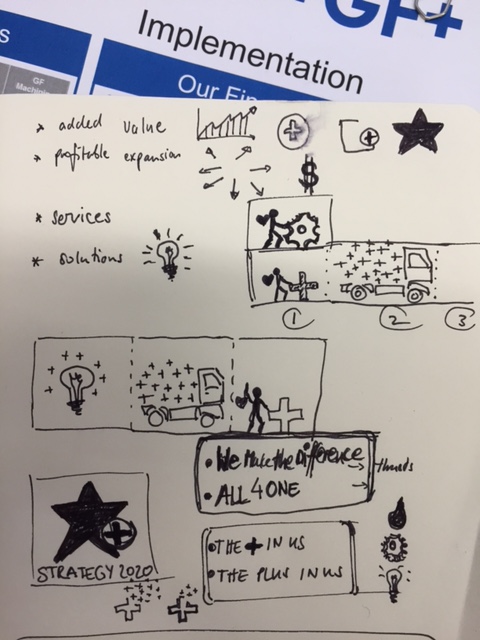 GF+
Implementation
s
GF
Our Fin
* added value
* profitable expansion
$
* services
* solutions
1 2 3
• We Make the Difference →
• ALL 4 ONE →
STRATEGY 2020
• THE + IN US
• THE PLUS IN US